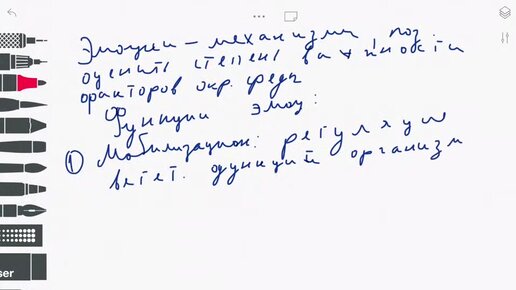 Эмоции – механизмы, поз
оценить степень важности
факторов окр. среды
Функции эмоц:
① Мобилизацион: регуляция
вегет. функций организм
ser